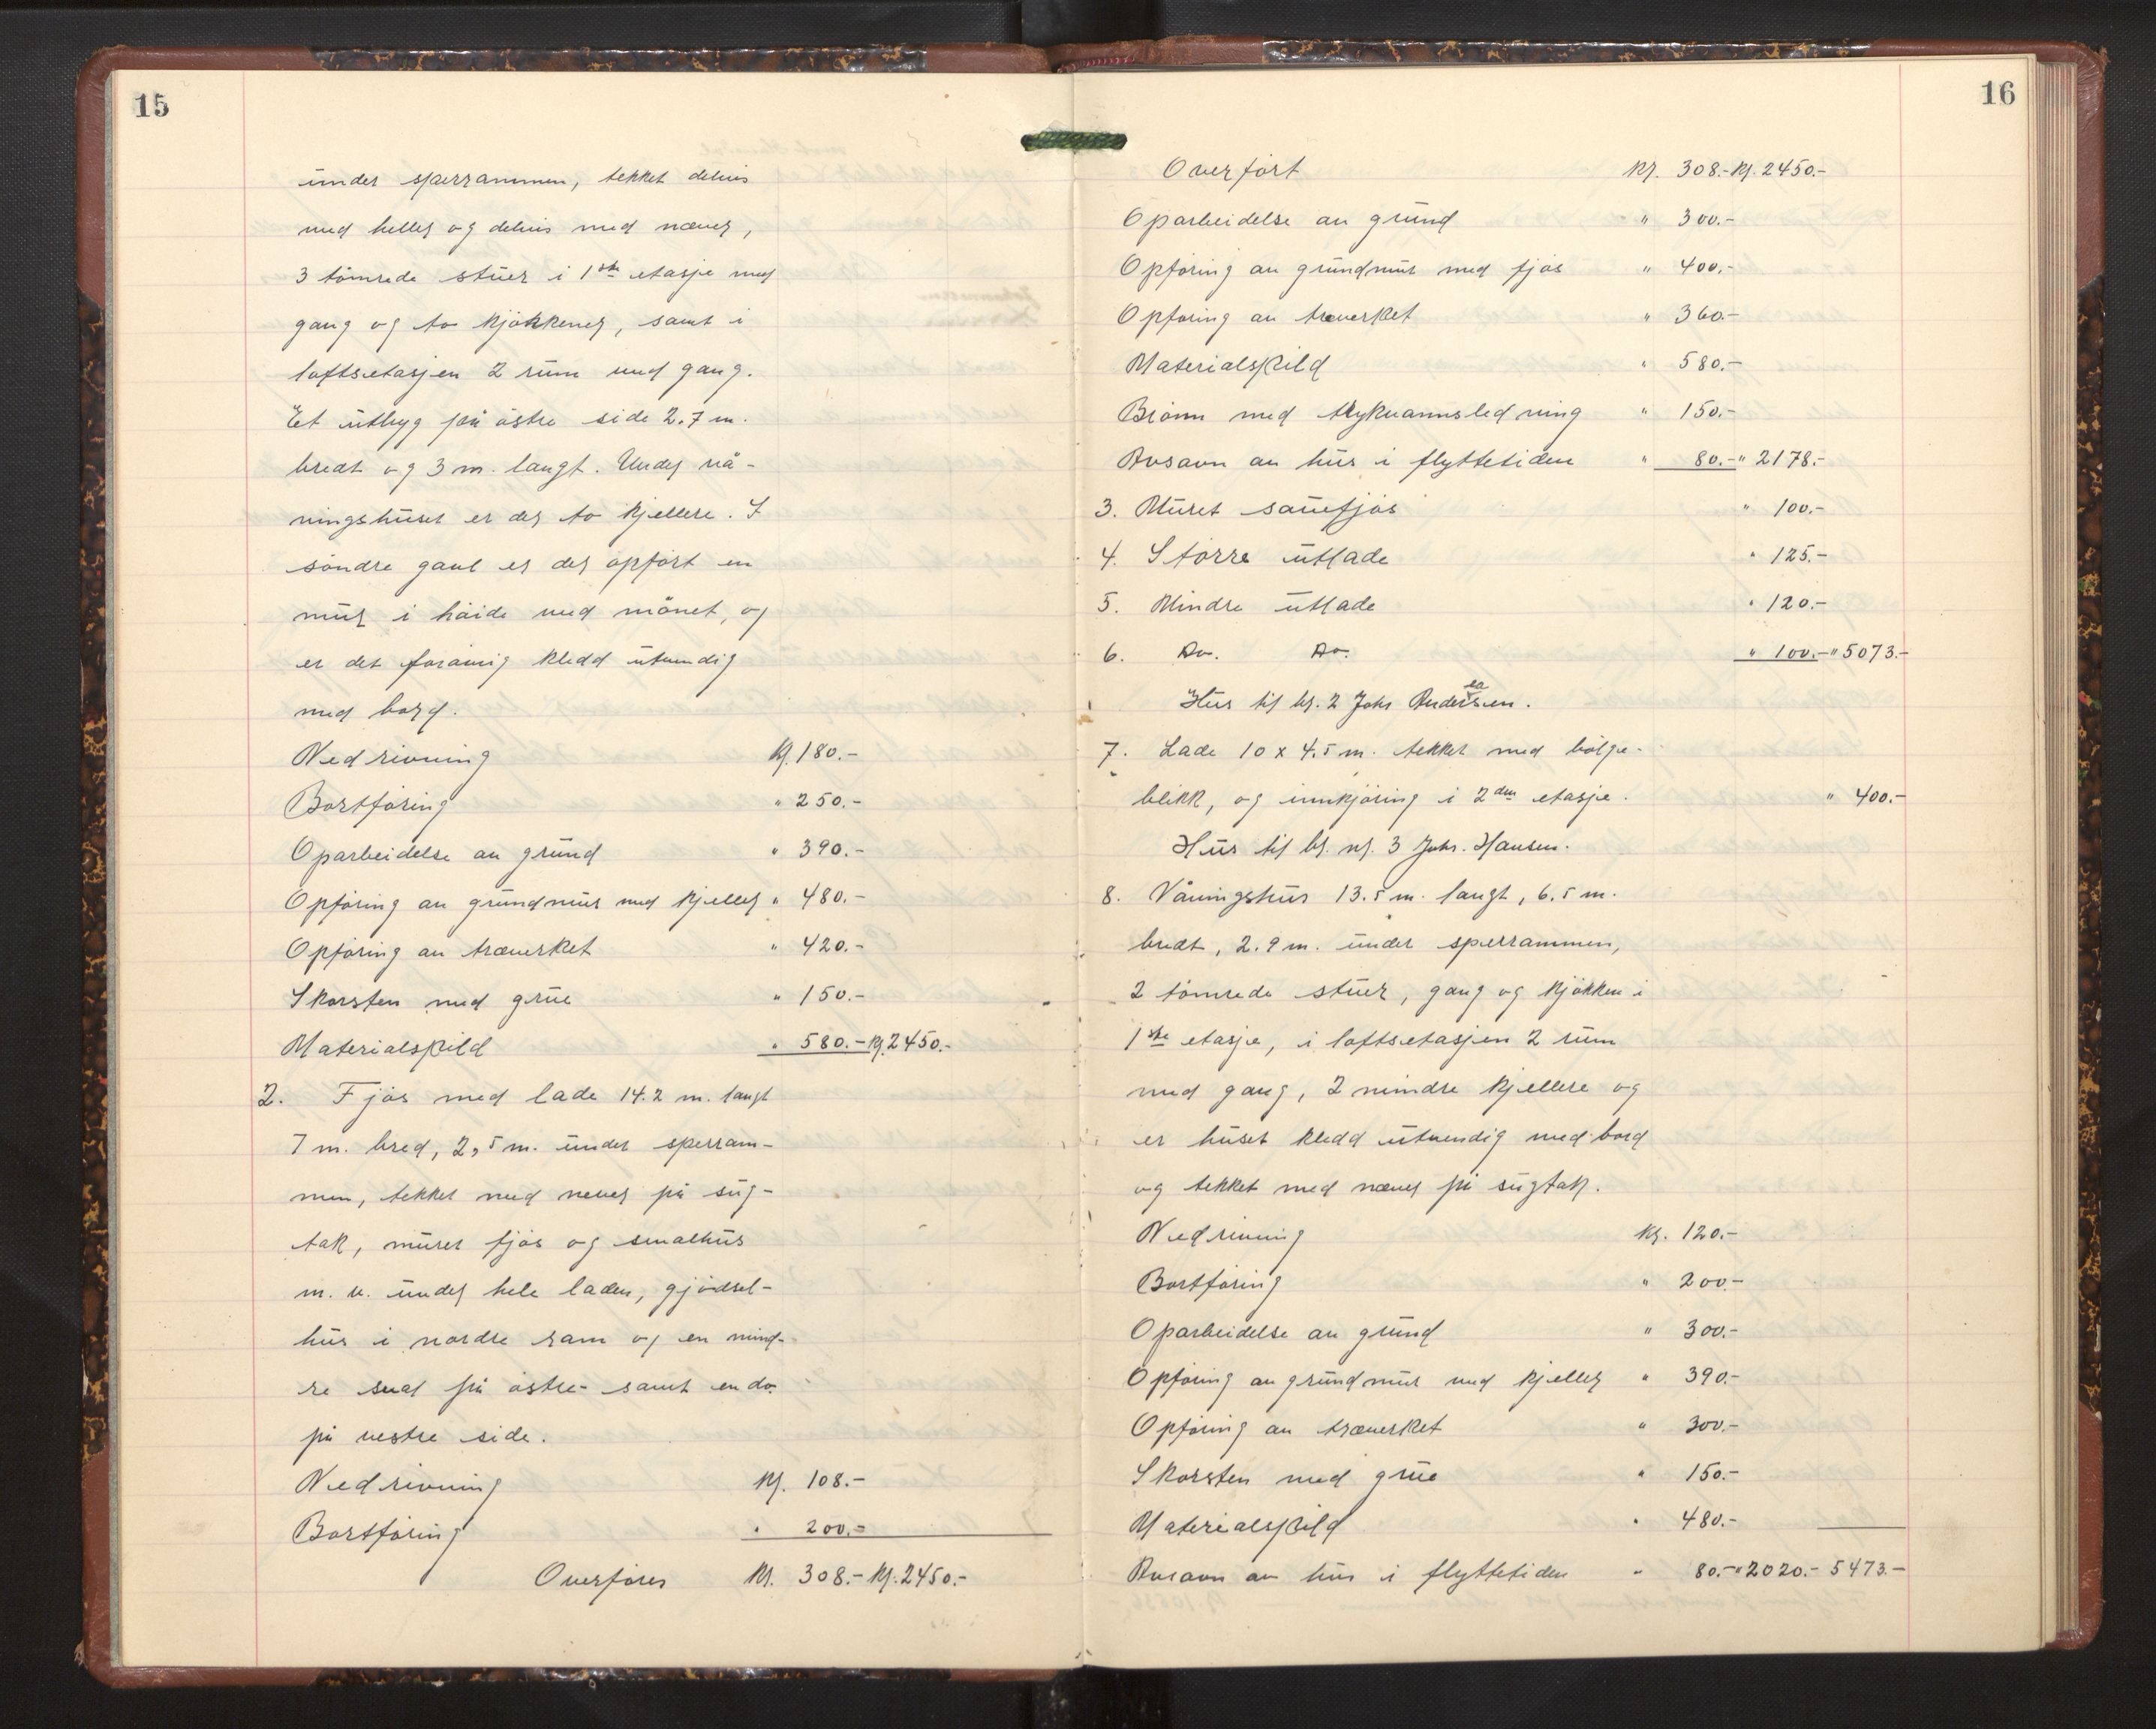 15
under sperrammen, tekket delvis
med heller og delvis med næver,
3 tømrede stuer i 1ste etasje med
gang og to kjøkkener, samt i
loftsetasjen 2 rum med gang.
Et utbyg på østre side 2.7 m.
bredt og 3 m. langt. Under vå-
ningshuset er der to kjellere. I
søndre gavl er der opført en
mur i høide med mønet, og
er det forøvrig kledd utvendig
med bord.
Nedrivning Kr. 180.-
Bortføring " 250.-
Oparbeidelse av grund " 390.-
Opføring av grundmur med kjeller " 480.-
Opføring av træverket " 420.-
Skorsten med grue " 150.-
Materialspild " 580.- Kr. 2450.-
2. Fjøs med lade 14.2 m. langt
7 m. bred, 2,5 m. under sperram-
men, tekket med never på sug-
tak, muret fjøs og smalhus
m. v. under hele laden, gjødsel-
hus i nordre ram og en mind-
re sval på østre- samt en do.
på vestre side.
Nedrivning Kr. 108.-
Bortføring " 200.-
Overføres Kr. 308.- Kr. 2450.-
16
Overført Kr. 308.- Kr. 2450.-
Oparbeidelse av grund " 300.-
Opføring av grundmur med fjøs " 400.-
Opføring av træverket " 360.-
Materialspild " 580.-
Brønn med trykvannsledning " 150.-
Avsavn av hus i flyttetiden " 80.- " 2178.-
3. Muret sauefjøs " 100.-
4. Større utlade " 125.-
5. Mindre utlade " 120.-
6. Do. Do. " 100.- " 5073.-
Hus til br. 2 Johs Andersen.
7. Lade 10 x 4.5 m. tekket med bølge-
blikk, og innkjøring i 2den etasje. " 400.-
Hus til br. nr. 3 Johs. Hansen.
8. Våningshus 13.5 m. langt, 6.5 m.
bredt, 2.9 m. under sperrammen,
2 tømrede stuer, gang og kjøkken i
1ste etasje, i loftsetasjen 2 rum
med gang, 2 mindre kjellere og
er huset kledd utvendig med bord
og tekket med næver på sugtak.
Nedrivning Kr. 120.-
Bortføring " 200.-
Oparbeidelse av grund " 300.-
Opføring av grundmur med kjeller " 390.-
Opføring av træverket " 300.-
Skorsten med grue " 150.-
Materialspild " 480.-
Avsavn av hus i flyttetiden " 80.- " 2020.- 5473.-